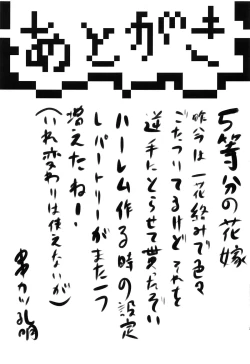 あとがき
5等分の花嫁
昨今は一花絡みで色々
ごたついてるけど それを
逆手にとらせて貰ったぞい
ハーレム作る時の設定
レパートリーがまた一つ
増えたねー!
(いれ変わりは使えないが)
男カツ孔明